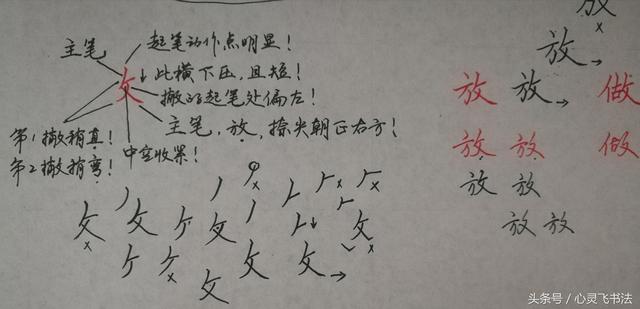 起笔动作点明显！
主笔
此横下压，且短！
攵
撇的起笔处偏左！
主笔，放，捺尖朝正右方！
第1撇稍直！
第2撇稍弯！
中宫收紧！
放
放
放 放 做
放 放 做
放 放
放 放
攵 攵 攵 攵
攵 攵 攵
头条号／心灵飞书法